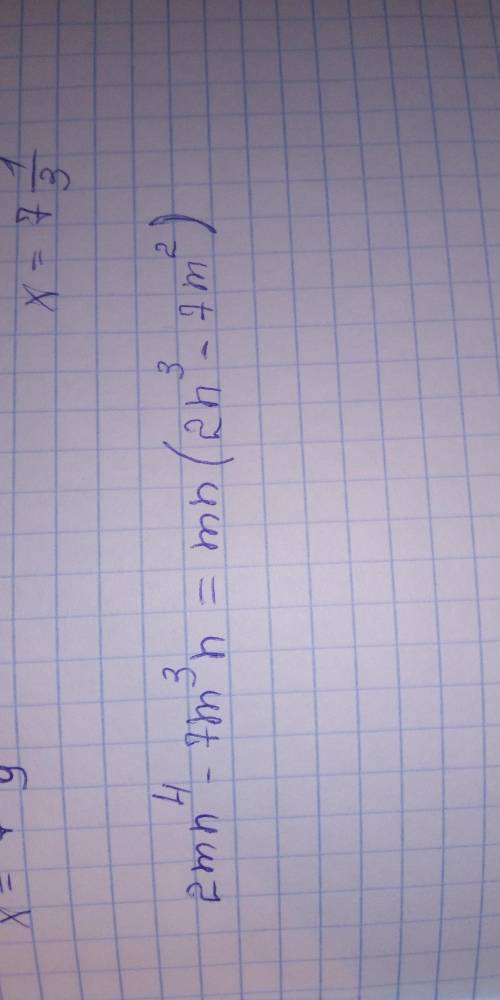 x = 7 1/3
2mn⁴ - 7m³n = mn(2n³ - 7m²)